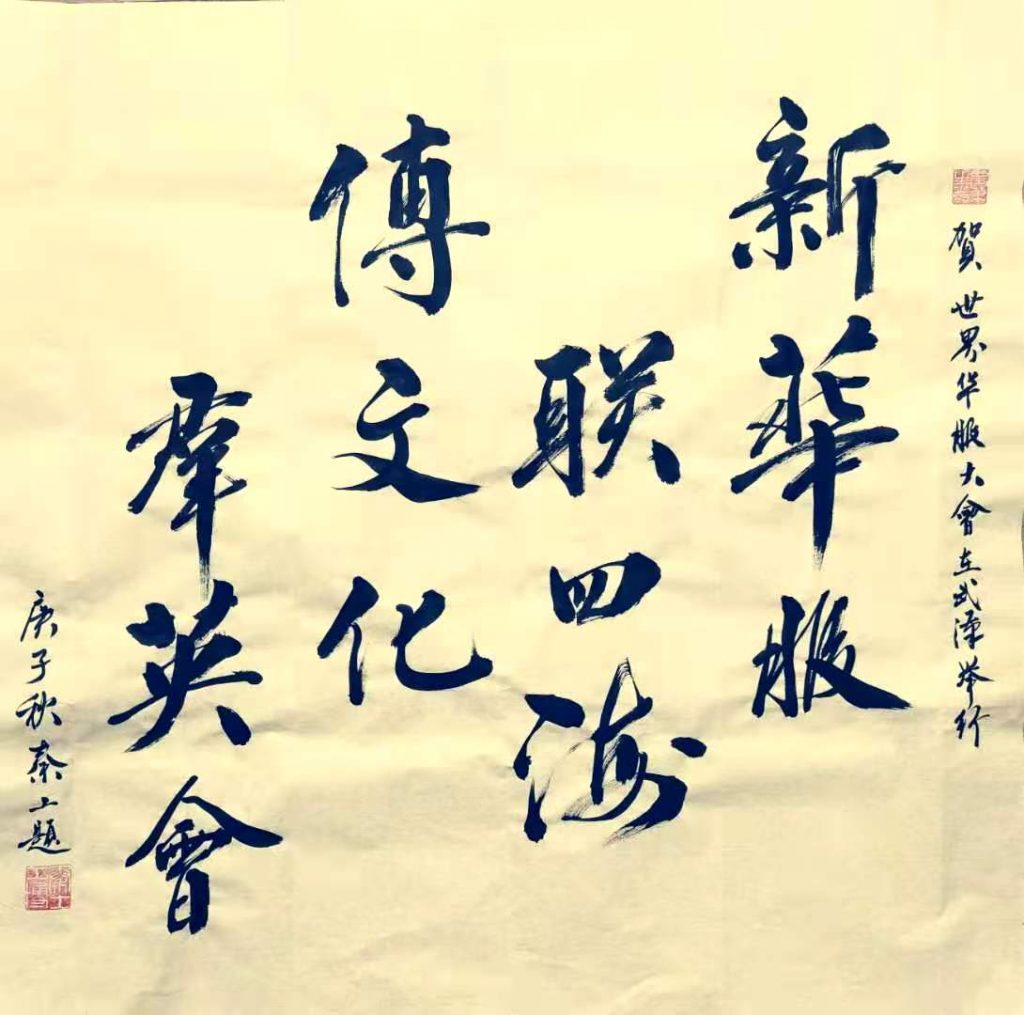 賀世界华服大會在武漢举行
新華服
联四海
傳文化
羣英會
庚子秋秦上題